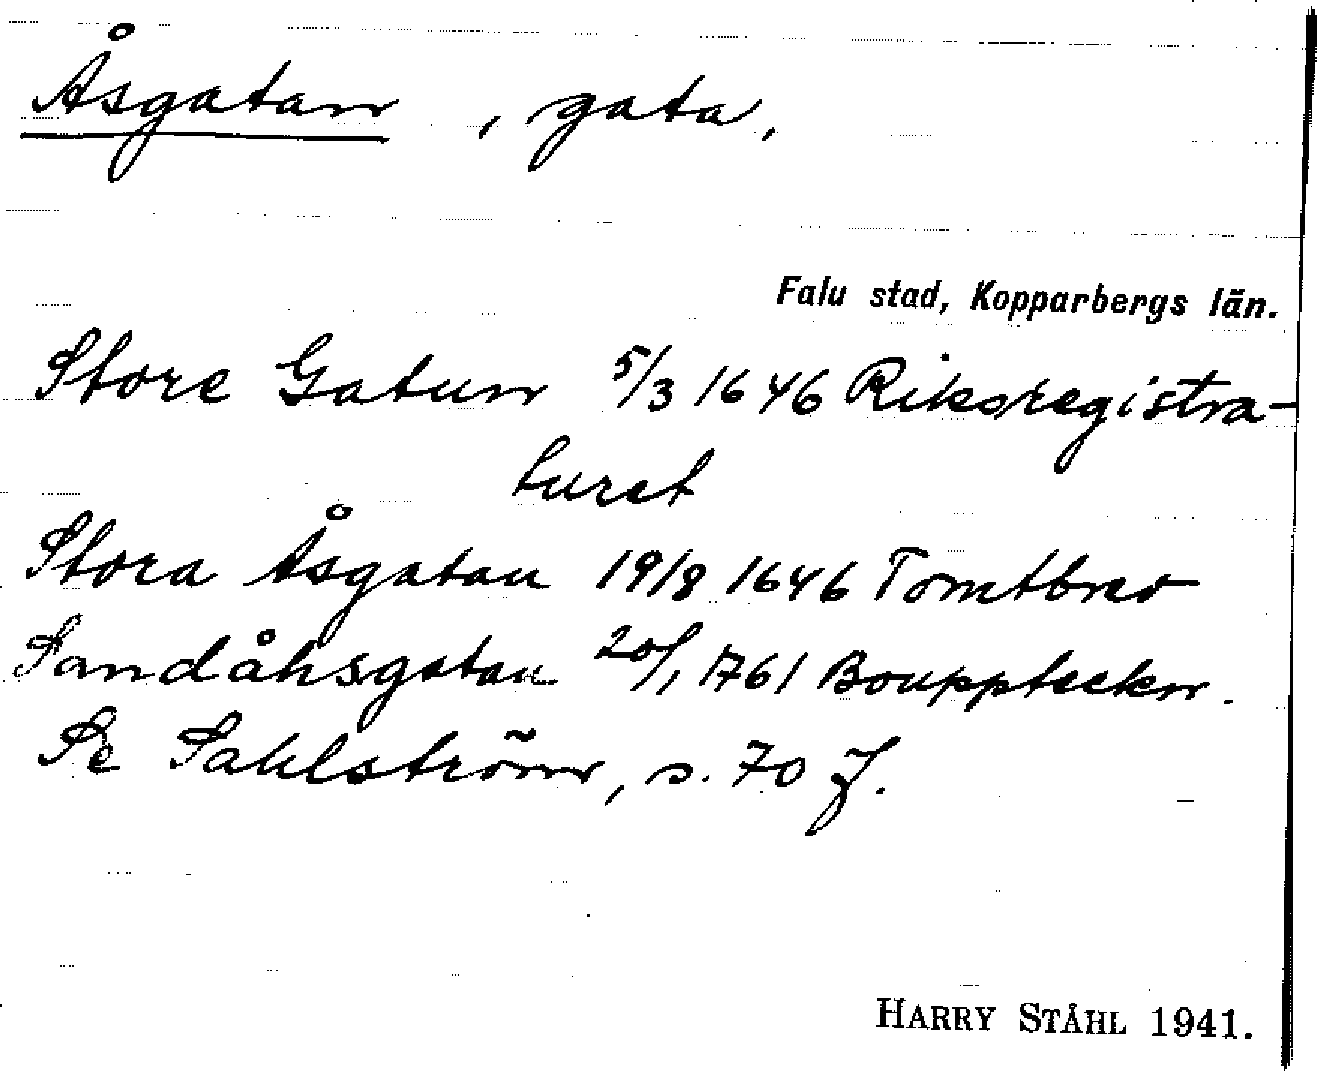 Åsgatan, gata.
Falu stad, Kopparbergs län.
Store Gatun 5/3 1646 Riksregistra-
turet
Stora Åsgatan 19/8 1646 Tomtbrev
Sandåhsgatan 20/1 1761 Bouppteckn.
Se Sahlström, s. 70 f.
HARRY STÅHL 1941.